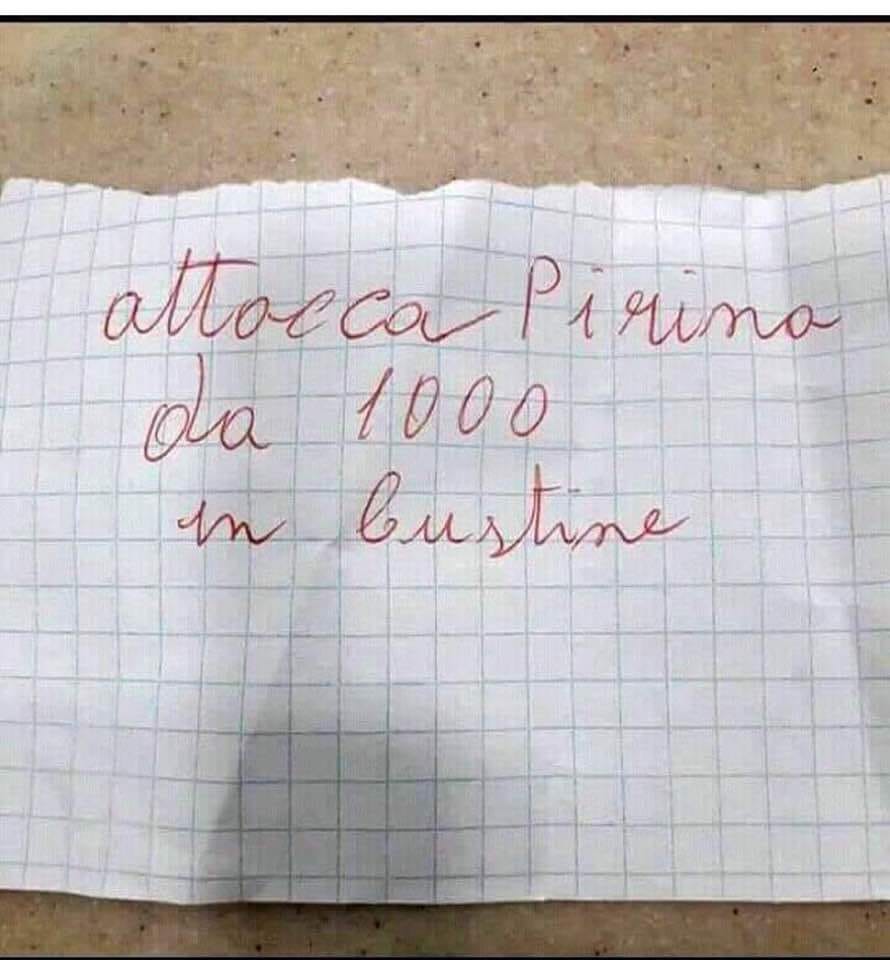 attacca Pirina
da 1000
in bustine